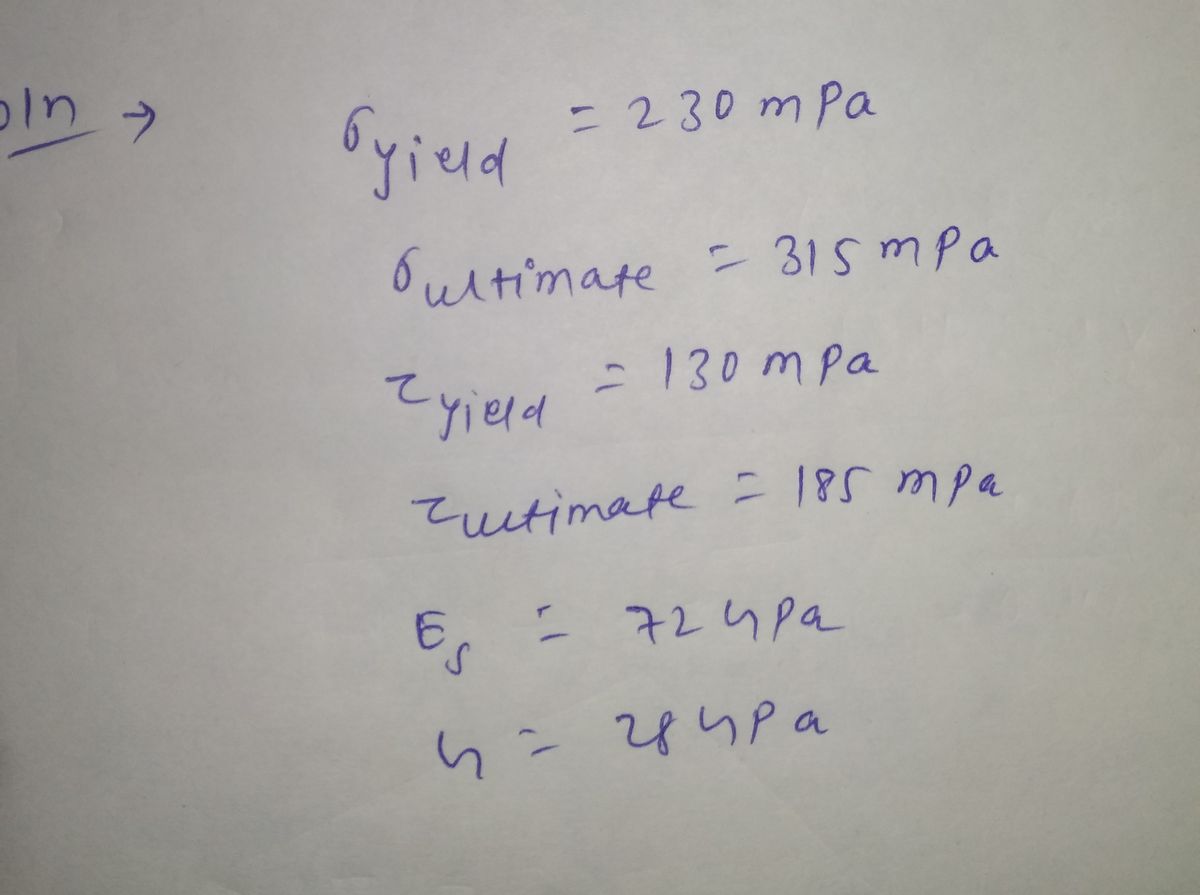 oln →
σyield = 230 mPa
σultimate = 315 mPa
τyield = 130 mPa
τultimate = 185 mPa
Es = 72 GPa
G = 28 GPa